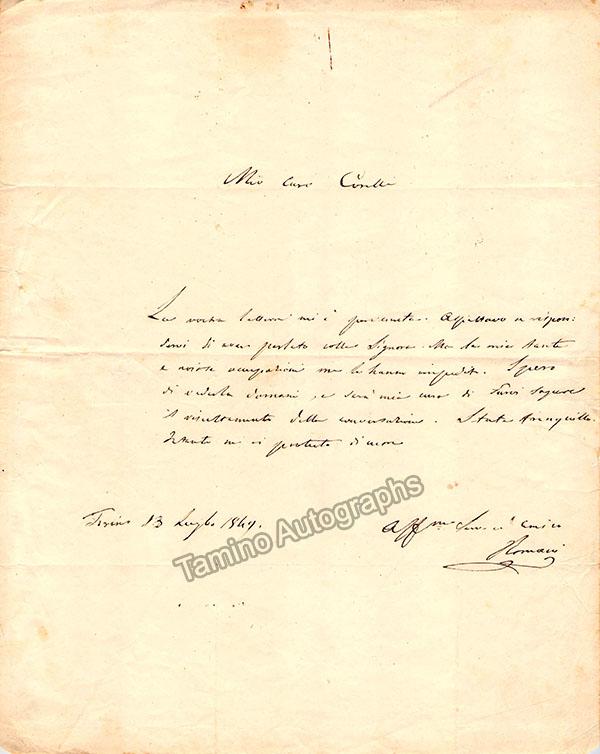 Mio caro Corelli
La vostra lettera mi è pervenuta. Aspettavo a rispon:
dervi di aver parlato colla Signora. Ma le mie tante
e noiose occupazioni me lo hanno impedito. Spero
di vederla domani, e sarà mia cura di farvi sapere
il risultamento della conversazione. State tranquillo.
mi vi protesto di cuore
Torino 13 Luglio 1849.
Aff.mo Serv. e amico
FRomani
Tamino Autographs